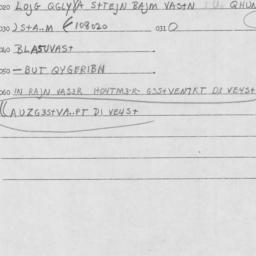 020 LOJG QGLYVA S+TEJN BAJM VAS+N
030 ) S+A..M 108020 031 0
040 BLASUVAST
050 — BUT QYGERIBN
060 IN RAJN VAS2R HOYTM3-R- GSS+VEN7RT DI VEYS+
AUZG3S+VA..PT DI VEYS+